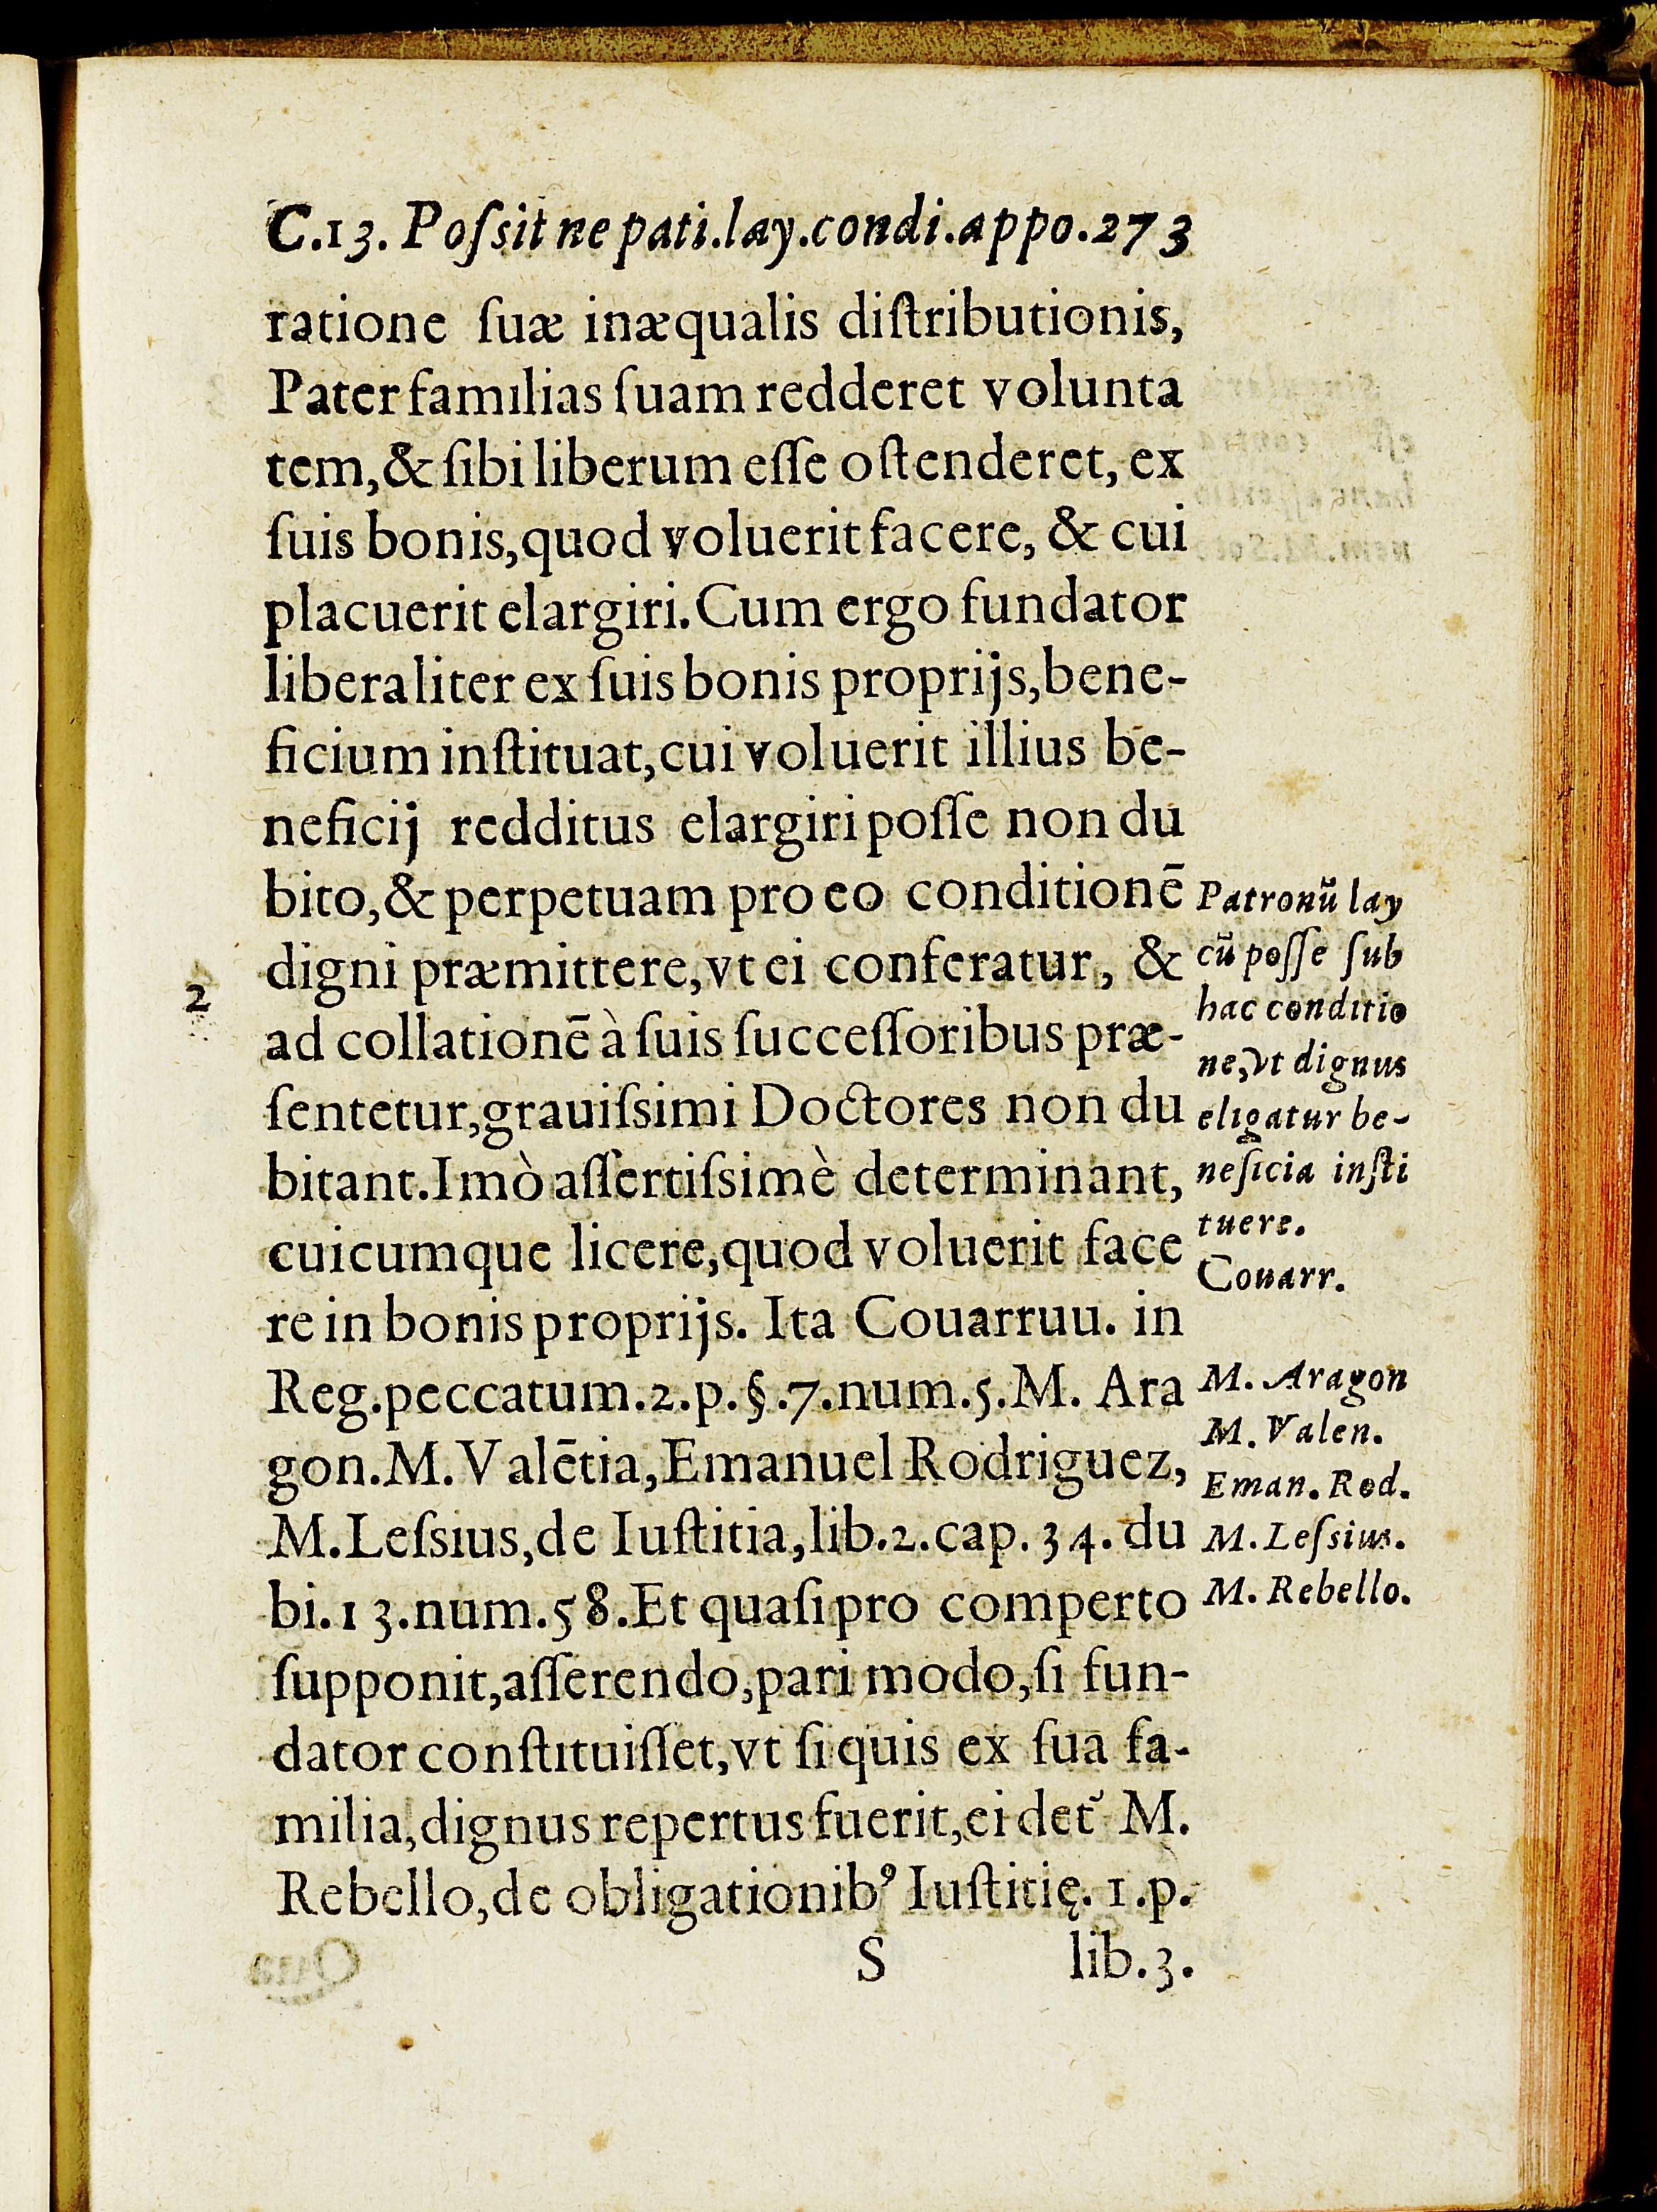 C.13. Poſsit ne pati.lay.condi.appo.273
ratione ſuæ inæqualis diſtributionis,
Pater familias ſuam redderet volunta
tem,& ſibi liberum eſſe oſtenderet, ex
ſuis bonis,quod voluerit facere, & cui
placuerit elargiri. Cum ergo fundator
liberaliter ex ſuis bonis proprijs,bene-
ficium inſtituat,cui voluerit illius be-
neficij redditus elargiri poſſe non du
bito,& perpetuam pro eo conditionē
digni præmittere,vt ei conferatur, &
ad collationē à ſuis ſucceſſoribus præ-
ſentetur,grauiſsimi Doctores non du
bitant.Imò aſſertiſsimè determinant,
cuicumque licere,quod voluerit face
re in bonis proprijs. Ita Couarruu. in
Reg.peccatum.2.p.§.7.num.5.M. Ara
gon.M.Valētia,Emanuel Rodriguez,
M.Leſsius,de Iuſtitia,lib.2.cap.34.du
bi.13.num.58.Et quaſi pro comperto
ſupponit,aſſerendo,pari modo,ſi fun-
dator conſtituiſſet,vt ſi quis ex ſua fa-
milia,dignus repertus fuerit,ei det᷑ M.
Rebello,de obligationibꝰ Iuſtitię.1.p.
S lib.3.
2
Patronū lay
cū poſſe ſub
hac conditio
ne,vt dignus
eligatur be-
neficia inſti
tuere.
Couarr.
M. Aragon
M. Valen.
Eman. Rod.
M. Leſsius.
M. Rebello.